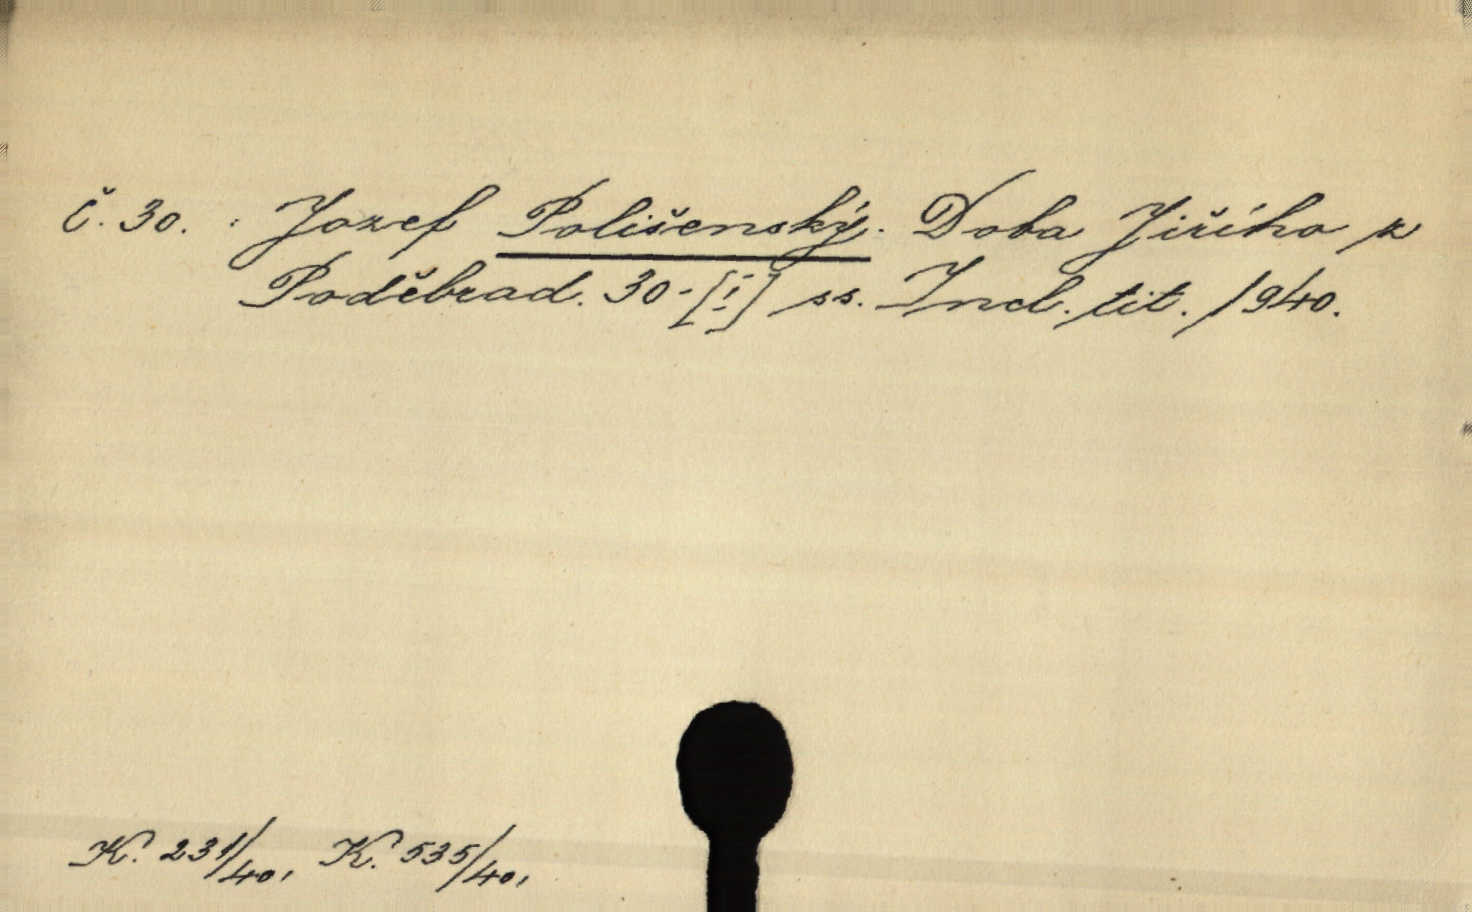 Č. 30. : Jozef Polišenský. Doba Jiřího z
Poděbrad. 30-[I] ss. Incl. tit. 1940.
K. 231/40, K. 535/40,